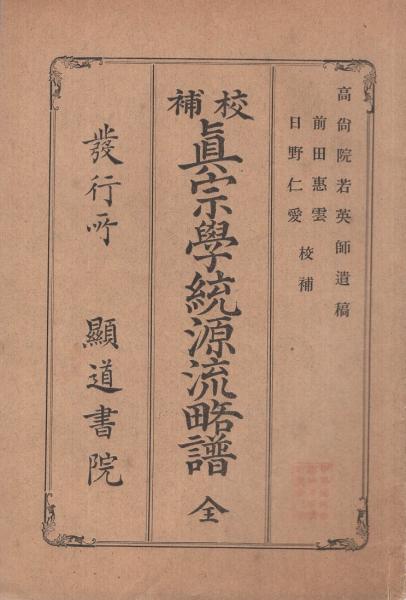 高尙院若英師遺稿
前田惠雲
日野仁愛
校補
校補
眞宗學統源流略譜 全
發行所 顯道書院